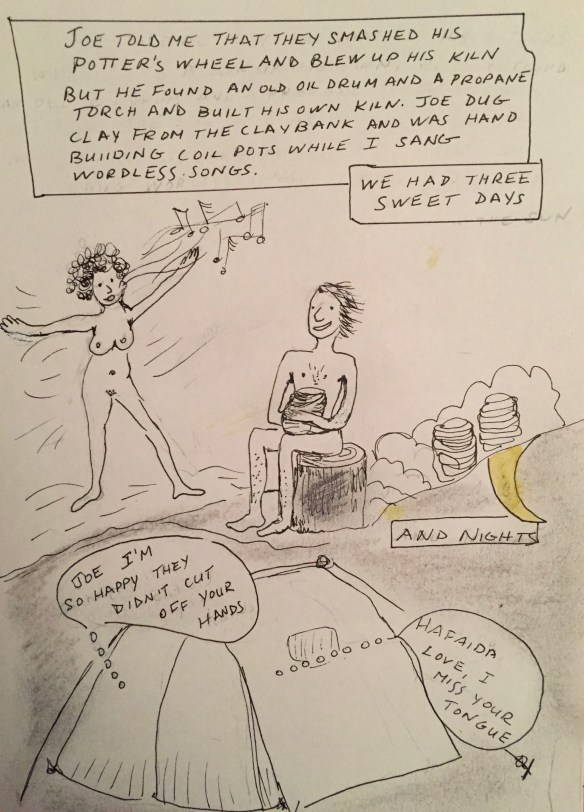 JOE TOLD ME THAT THEY SMASHED HIS
POTTER'S WHEEL AND BLEW UP HIS KILN
BUT HE FOUND AN OLD OIL DRUM AND A PROPANE
TORCH AND BUILT HIS OWN KILN. JOE DUG
CLAY FROM THE CLAYBANK AND WAS HAND
BUIIDING COIL POTS WHILE I SANG
WORDLESS SONGS.
WE HAD THREE
SWEET DAYS
AND NIGHTS
JOE I'M
SO HAPPY THEY
DIDN'T CUT
OFF YOUR
HANDS
HAFAIDA
LOVE, I
MISS YOUR
TONGUE